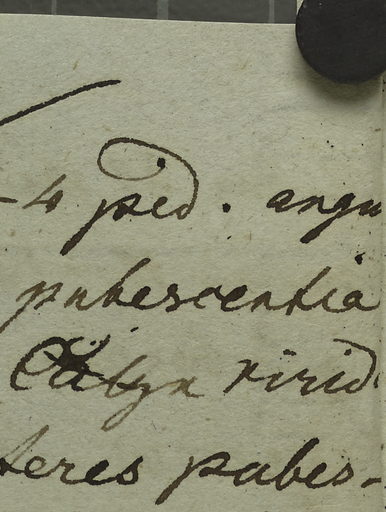 -4 ped. angu
pubescentia
Calyx virid
teres pubes-